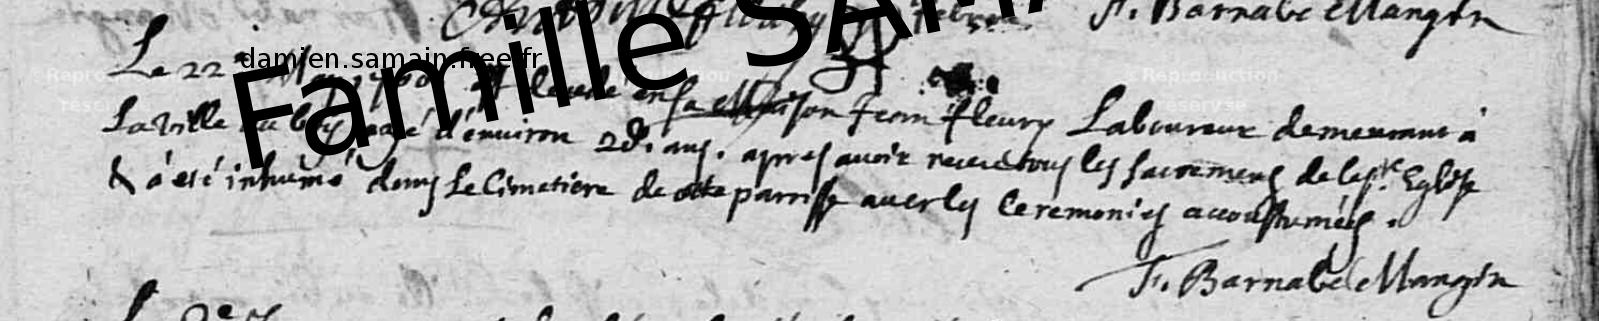 F. Barnabé Mangin
damien.samain.free.fr
Famille SAMA
Le 22 May 1760 est decedé en sa Maison Jean fleury Laboureur demeurant à
La ville au boys agé d'environ 28. ans. apres avoir receu tous les sacremens de la ste Eglise
& a été inhumé dans Le Cimetiere de cette parroisse avec les Ceremonies accoustumées.
F. Barnabé Mangin
Reproduction
réservée